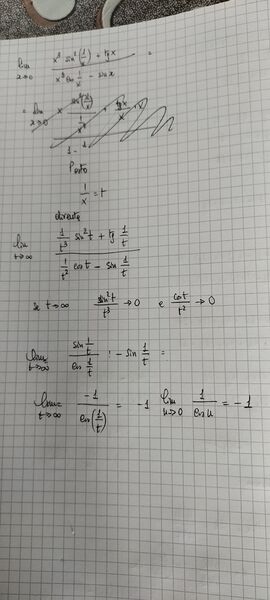 lim x→0 (x³ sin²(1/x) + tg x) / (x² cos 1/x - sin x) =
= lim x→0 x
1 -
Posto
1/x = t
diventa
lim t→∞ (1/t³ sin²t + tg 1/t) / (1/t² cos t - sin 1/t)
se t→∞ sin²t/t³ → 0 e cos t/t² → 0
lim t→∞ (sin 1/t)/(cos 1/t) : - sin 1/t =
lim t→∞ -1/cos(1/t) = -1 lim u→0 1/cos u = -1